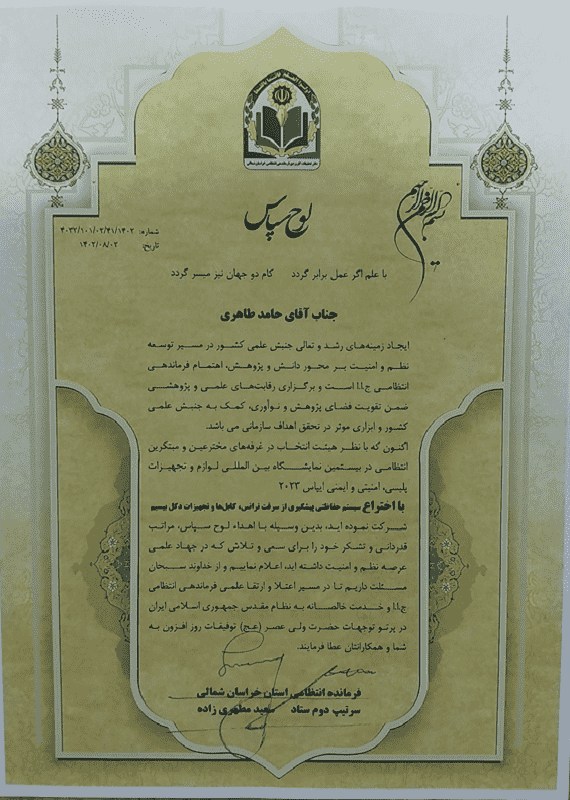 بسم الله الرحمن الرحیم
لوح سپاس
شماره: ۴۰۳۲/۱۰۱/۰۲/۴۱/۱۴۰۲
تاریخ: ۱۴۰۲/۰۸/۰۲
با علم اگر عمل برابر گردد کام دو جهان نیز میسر گردد
جناب آقای حامد طاهری
ایجاد زمینه‌های رشد و تعالی جنبش علمی کشور در مسیر توسعه
نظم و امنیت بر محور دانش و پژوهش، اهتمام فرماندهی
انتظامی ج.ا.ا است و برگزاری رقابت‌های علمی و پژوهشی
ضمن تقویت فضای پژوهش و نوآوری، کمک به جنبش علمی
کشور و ابزاری موثر در تحقق اهداف سازمانی می باشد.
اکنون که با نظر هیئت انتخاب در غرفه‌های مخترعین و مبتکرین
انتظامی در بیستمین نمایشگاه بین المللی لوازم و تجهیزات
پلیسی، امنیتی و ایمنی ایپاس ۲۰۲۳
با اختراع سیستم حفاظتی پیشگیری از سرقت ترانس، کابل‌ها و تجهیزات دکل بیسیم
شرکت نموده اید، بدین وسیله با اهداء لوح سپاس، مراتب
قدردانی و تشکر خود را برای سعی و تلاش که در جهاد علمی
عرصه نظم و امنیت داشته اید، اعلام نماییم و از خداوند سبحان
مسئلت داریم تا در مسیر اعتلا و ارتقا علمی فرماندهی انتظامی
ج.ا.ا و خدمت خالصانه به نظام مقدس جمهوری اسلامی ایران
در پرتو توجهات حضرت ولی عصر (عج) توفیقات روز افزون به
شما و همکارانتان عطا فرمایند.
فرمانده انتظامی استان خراسان شمالی
سرتیپ دوم ستاد سعید مطهری زاده